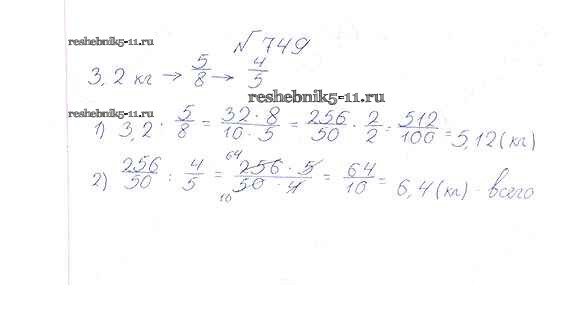 reshebnik5-11.ru
№ 749
3,2 кг → 5/8 → 4/5
reshebnik5-11.ru
reshebnik5-11.ru
1) 3,2 · 5/8 = 32 · 8 / 10 · 5 = 256/50 · 2/2 = 512/100 = 5,12 (кг)
2) 256/50 : 4/5 = 64 256 · 5 / 10 50 · 4 = 64/10 = 6,4 (кг) - всего